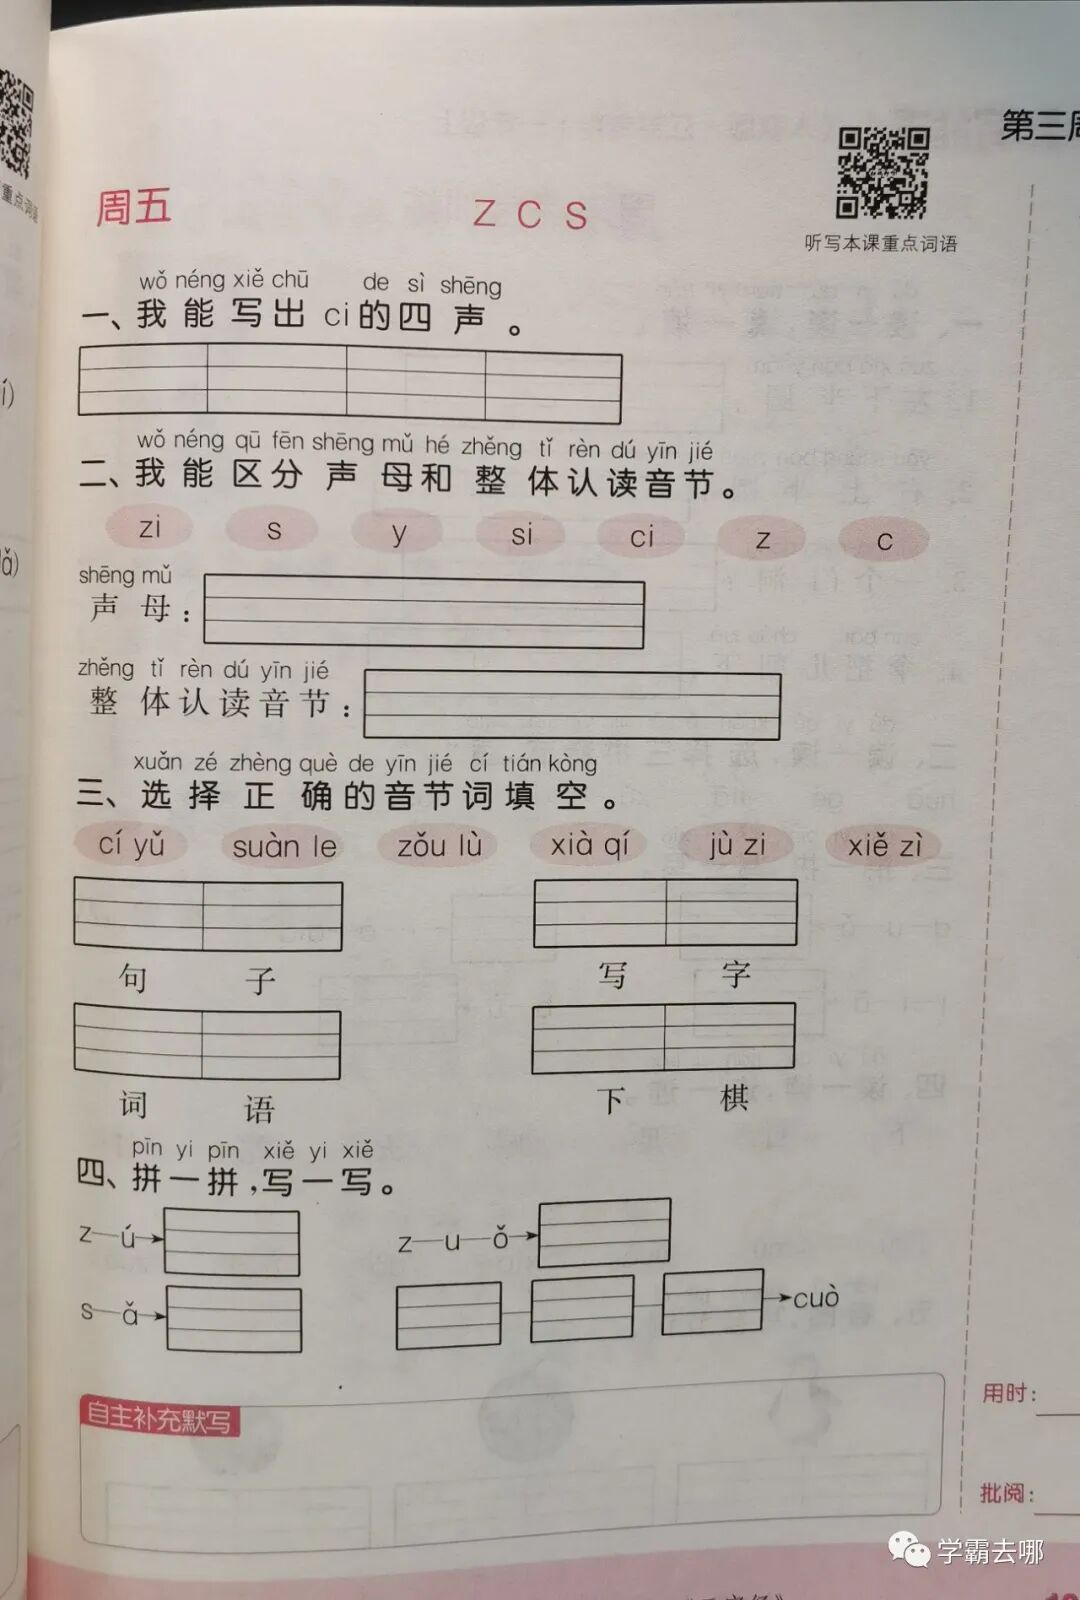 第三周
重点词语
周五
z c s
听写本课重点词语
wǒ néng xiě chū de sì shēng
一、我能写出ci的四声。
wǒ néng qū fēn shēng mǔ hé zhěng tǐ rèn dú yīn jié
二、我能区分声母和整体认读音节。
zi s y si ci z c
shēng mǔ
声母：
zhěng tǐ rèn dú yīn jié
整体认读音节：
xuǎn zé zhèng què de yīn jié cí tián kòng
三、选择正确的音节词填空。
cí yǔ suàn le zǒu lù xià qí jù zi xiě zì
句子 写字
词语 下棋
pīn yi pīn xiě yi xiě
四、拼一拼，写一写。
z—ú→ z—u—ǒ→
s—ǎ→ →cuò
自主补充默写
用时：
批阅：
学霸去哪